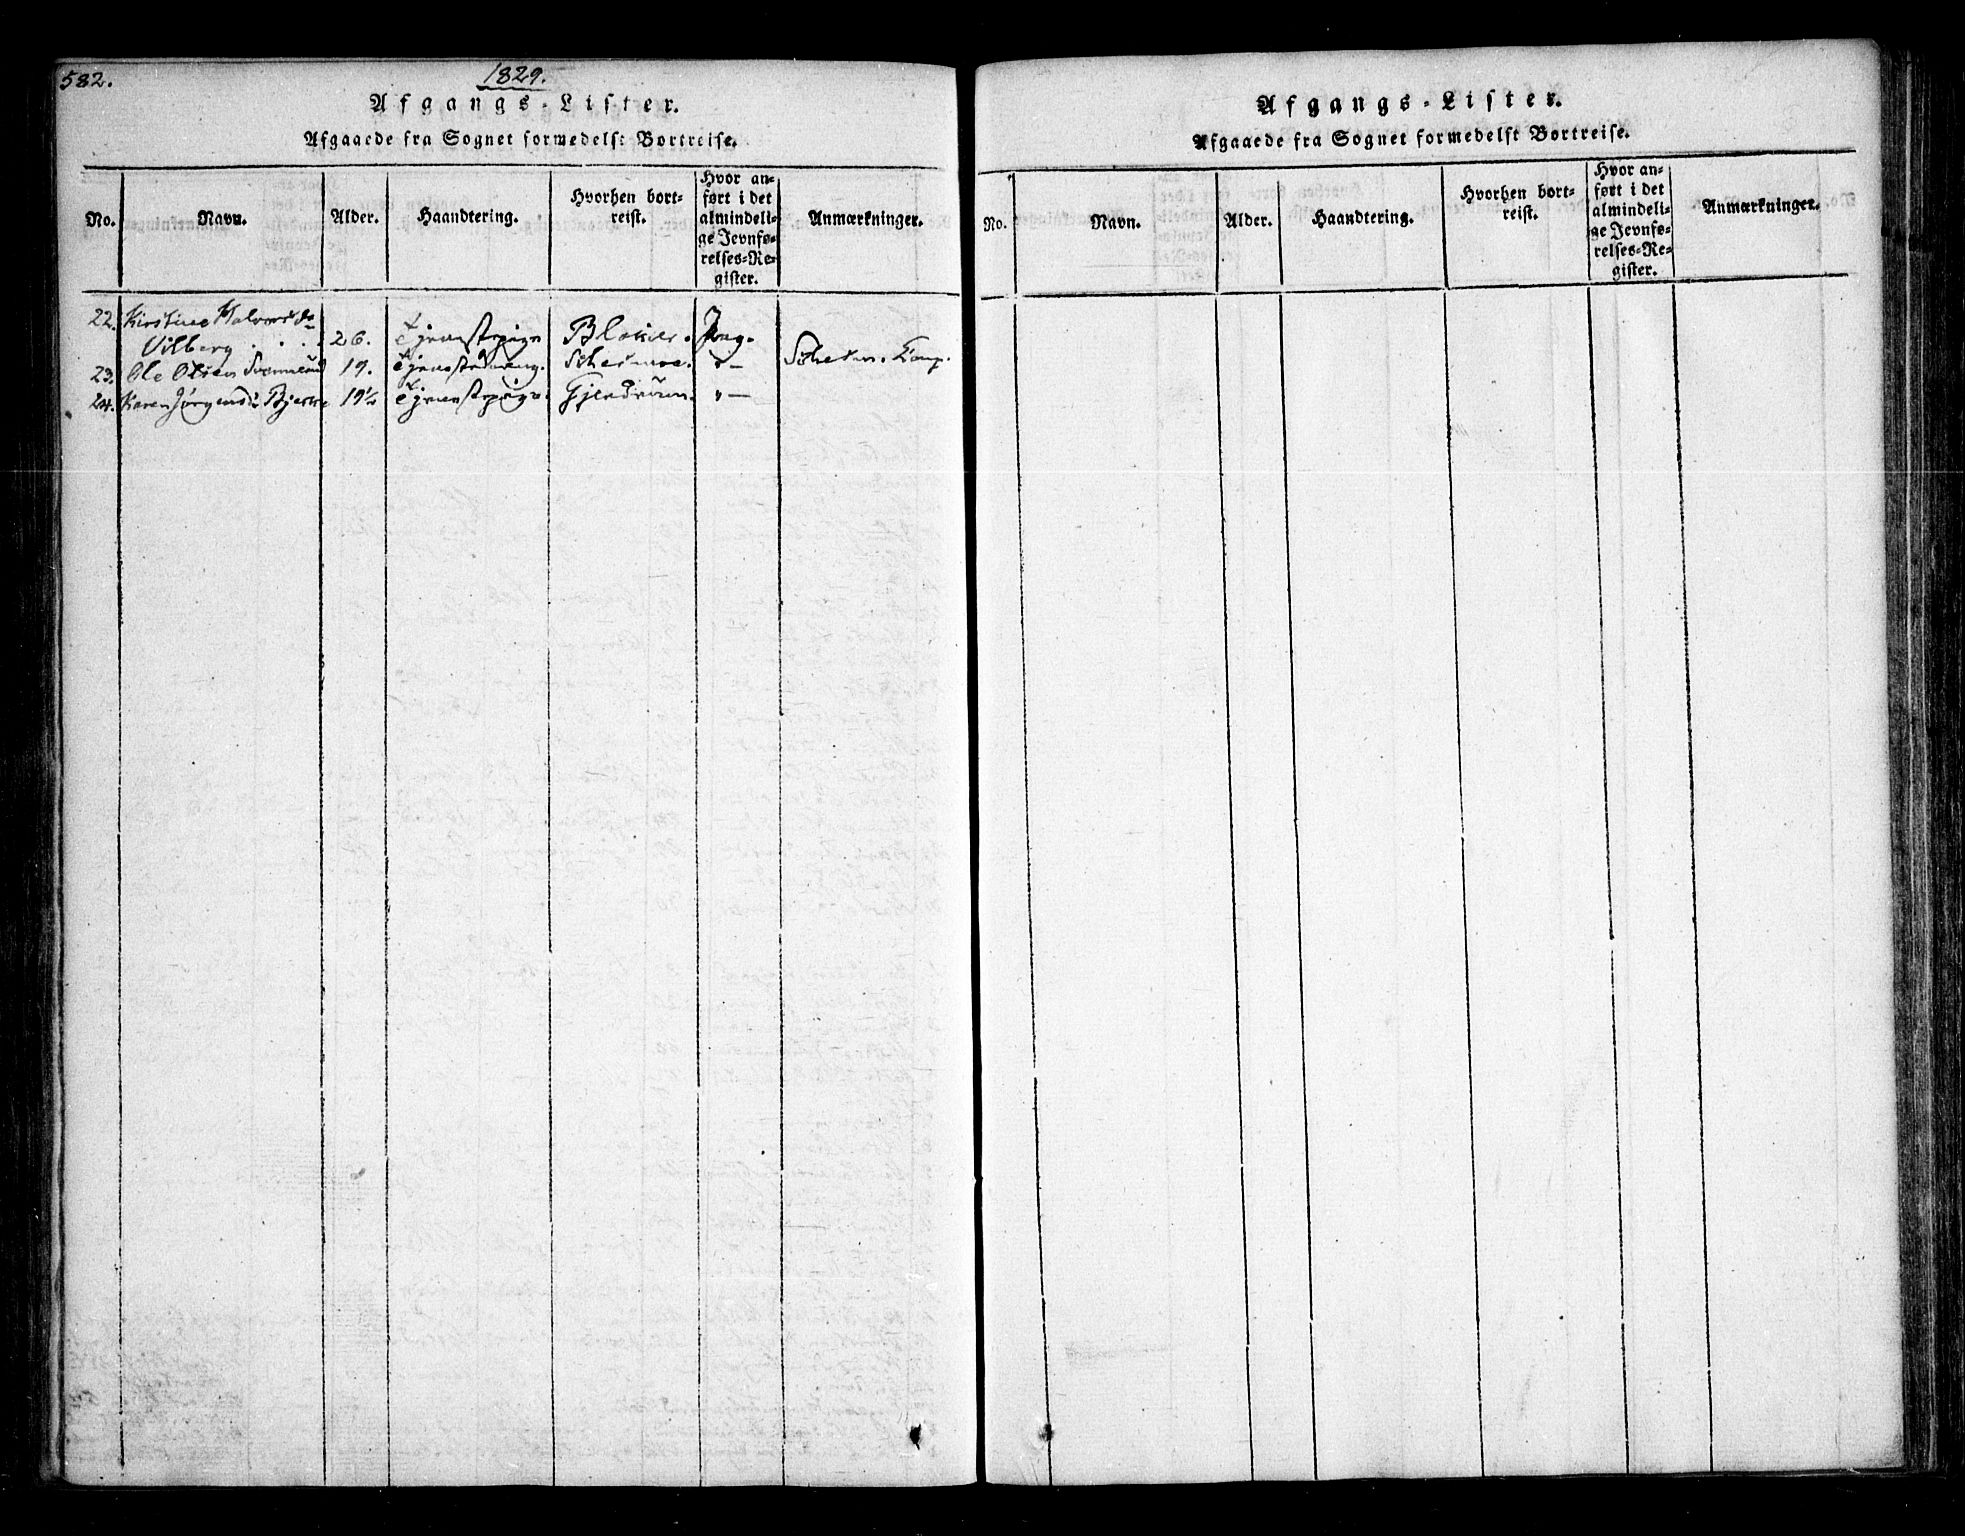 582.
1829.
Afgangs-Lister.
Afgaaede fra Sognet formedelst Bortreise.
No.
Navn.
Alder.
Haandtering.
Hvorhen bort-
reist.
Hvor an-
ført i det
almindeli-
ge Jevnfø-
relses-Re-
gister.
Anmærkninger.
22. Kirstine Halvorsd
Vilberg . . . 26. Tjenestepige Blakier. Jvng.
23. Ole Olsen 19. Tjenestedreng. Schedsmoe. " —
24. Karen Jörgensd Bjerke 19½ Tjenestepige. Gjerdrum. " —
Afgangs-Lister.
Afgaaede fra Sognet formedelst Bortreise.
No.
Navn.
Alder.
Haandtering.
Hvorhen bort-
reist.
Hvor an-
ført i det
almindeli-
ge Jevnfø-
relses-Re-
gister.
Anmærkninger.